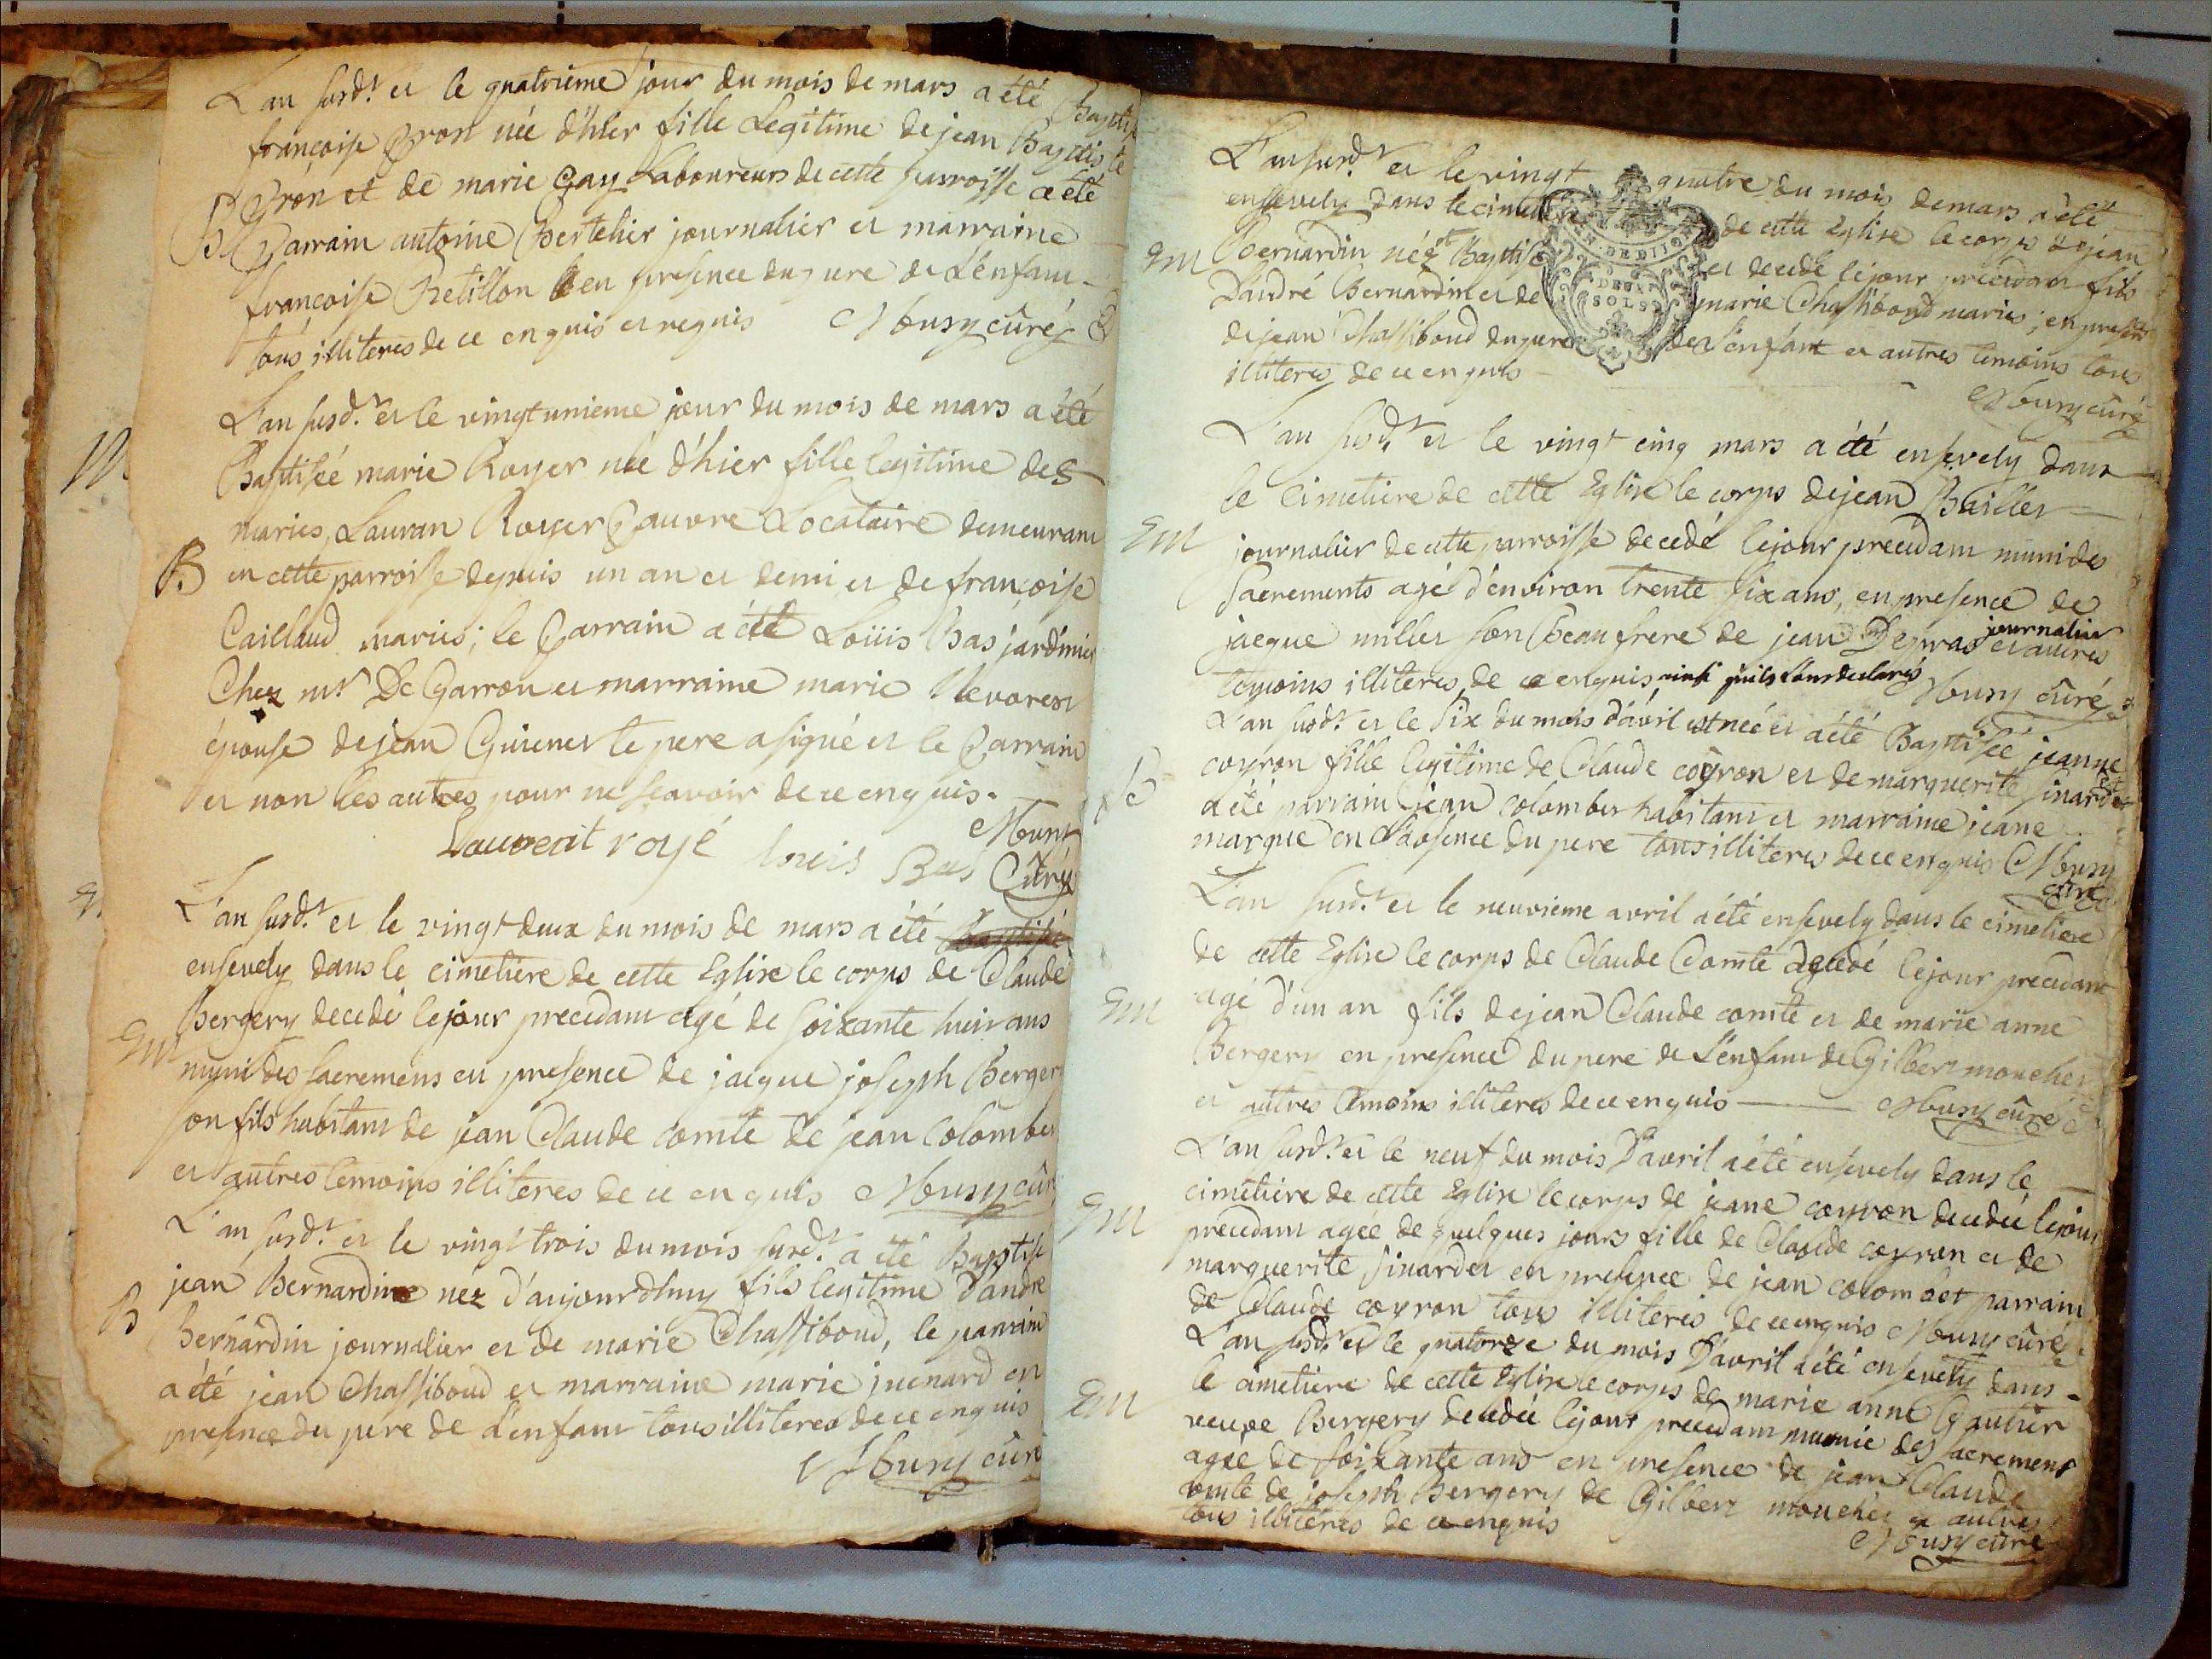 L'an susd.t et le quatrieme jour du mois de mars a été Baptisé
françoise Gron née d'hier fille Legitime de jean Baptiste
B Gron et de marie Gay Laboureurs de cette parroisse a été
Parrain antoine Bertelier journalier et marraine
françoise Petillon en presence du pere de L'enfant
tous illiteres de ce enquis et requis Musy curé
L'an susd.t et le vingt unieme jour du mois de mars a été
Baptisée marie Royer née d'hier fille legitime des
maries, Lauran Royer Pauvre Locataire demeurant
B en cette parroisse depuis un an et demi et de françoise
Caillaud maries; le Parrain a été Loüis Bas jardinier
Chez mr De Garron et marraine marie
épouse de jean le pere a signé et le Parrain
et non les autres pour ne sçavoir de ce enquis.
Laurent royé louis Bas Musy
Curé
L'an susd.t et le vingt deux du mois de mars a été Baptisé
ensevely dans le cimetiere de cette Eglise le corps de Claude
Bergery decedé le jour precedant agé de soixante huit ans
Em muni des sacremens en presence de jacque joseph Berger
son fils habitant de jean Claude comte de jean Colombet
et autres temoins illiteres de ce enquis Musy curé
L'an susd.t et le vingt trois du mois susd.t a été Baptisé
jean Bernardin néz d'aujourdhuy fils legitime d'andré
B Bernardin journalier et de marie Chassiboud, le parrain
a été jean Chassiboud et marraine marie juenard en
presence du pere de L'enfant tous illiteres de ce enquis
Musy curé
L'an susd.t et le vingt quatre du mois de mars a été
ensevely dans le cimet de cette Eglise le corps de jean
Em Bernardin néz et Baptisé et decedé le jour precedant fils
D'andré Bernardin et de marie Chassiboud maries; en presence
de jean Chassiboud du pere de L'enfant et autres temoins tous
illiteres de ce enquis
Musy curé
L'an susd.t et le vingt cinq mars a été ensevely dans
le Cimetiere de cette Eglise le corps de jean Baillet
Em journalier de cette parroisse decedé le jour precedant muni des
Sacrements agé d'environ trente six ans, en presence de
jacque millet son Beau frere de jean Depras journalier et autres
temoins illiteres de ce enquis ainsi quils l'ont declarés Musy curé
L'an susd.t et le Six du mois d'avril est neé et a été Baptisée jeanne
B coyron fille legitime de Claude coyron et de marguerite Sinardet
a été parrain jean colombet habitant et marraine jeane
marque en L'absence du pere tous illiteres de ce enquis Musy
curé
L'an susd.t et le neuvieme avril a été ensevely dans le cimetiere
de cette Eglise le corps de Claude Comte decedé le jour precedant
Em agé d'un an fils de jean Claude comte et de marie anne
Bergery en presence du pere de L'enfant de Gilbert mouchet
et autres temoins illiteres de ce enquis Musy curé
L'an susd.t et le neuf du mois D'avril a été ensevely dans le
cimetiere de cette Eglise le corps de jeane coyron decedée le jour
Em precedant ageé de quelques jours fille de Claude coyron et de
marguerite Sinardet en presence de jean colombet parrain
de Claude coyron tous illiteres de ce enquis Musy curé
L'an susd.t et le quatorze du mois D'avril a été ensevely dans
le cimetiere de cette Eglise le corps de marie anne Gautier
Em veuve Bergery decedée le jour precedant munie des sacremens
ageé de soixante ans en presence de jean Claude
comte de joseph Bergery de Gilbert mouchet et autres
tous illiteres de ce enquis
Musy curé